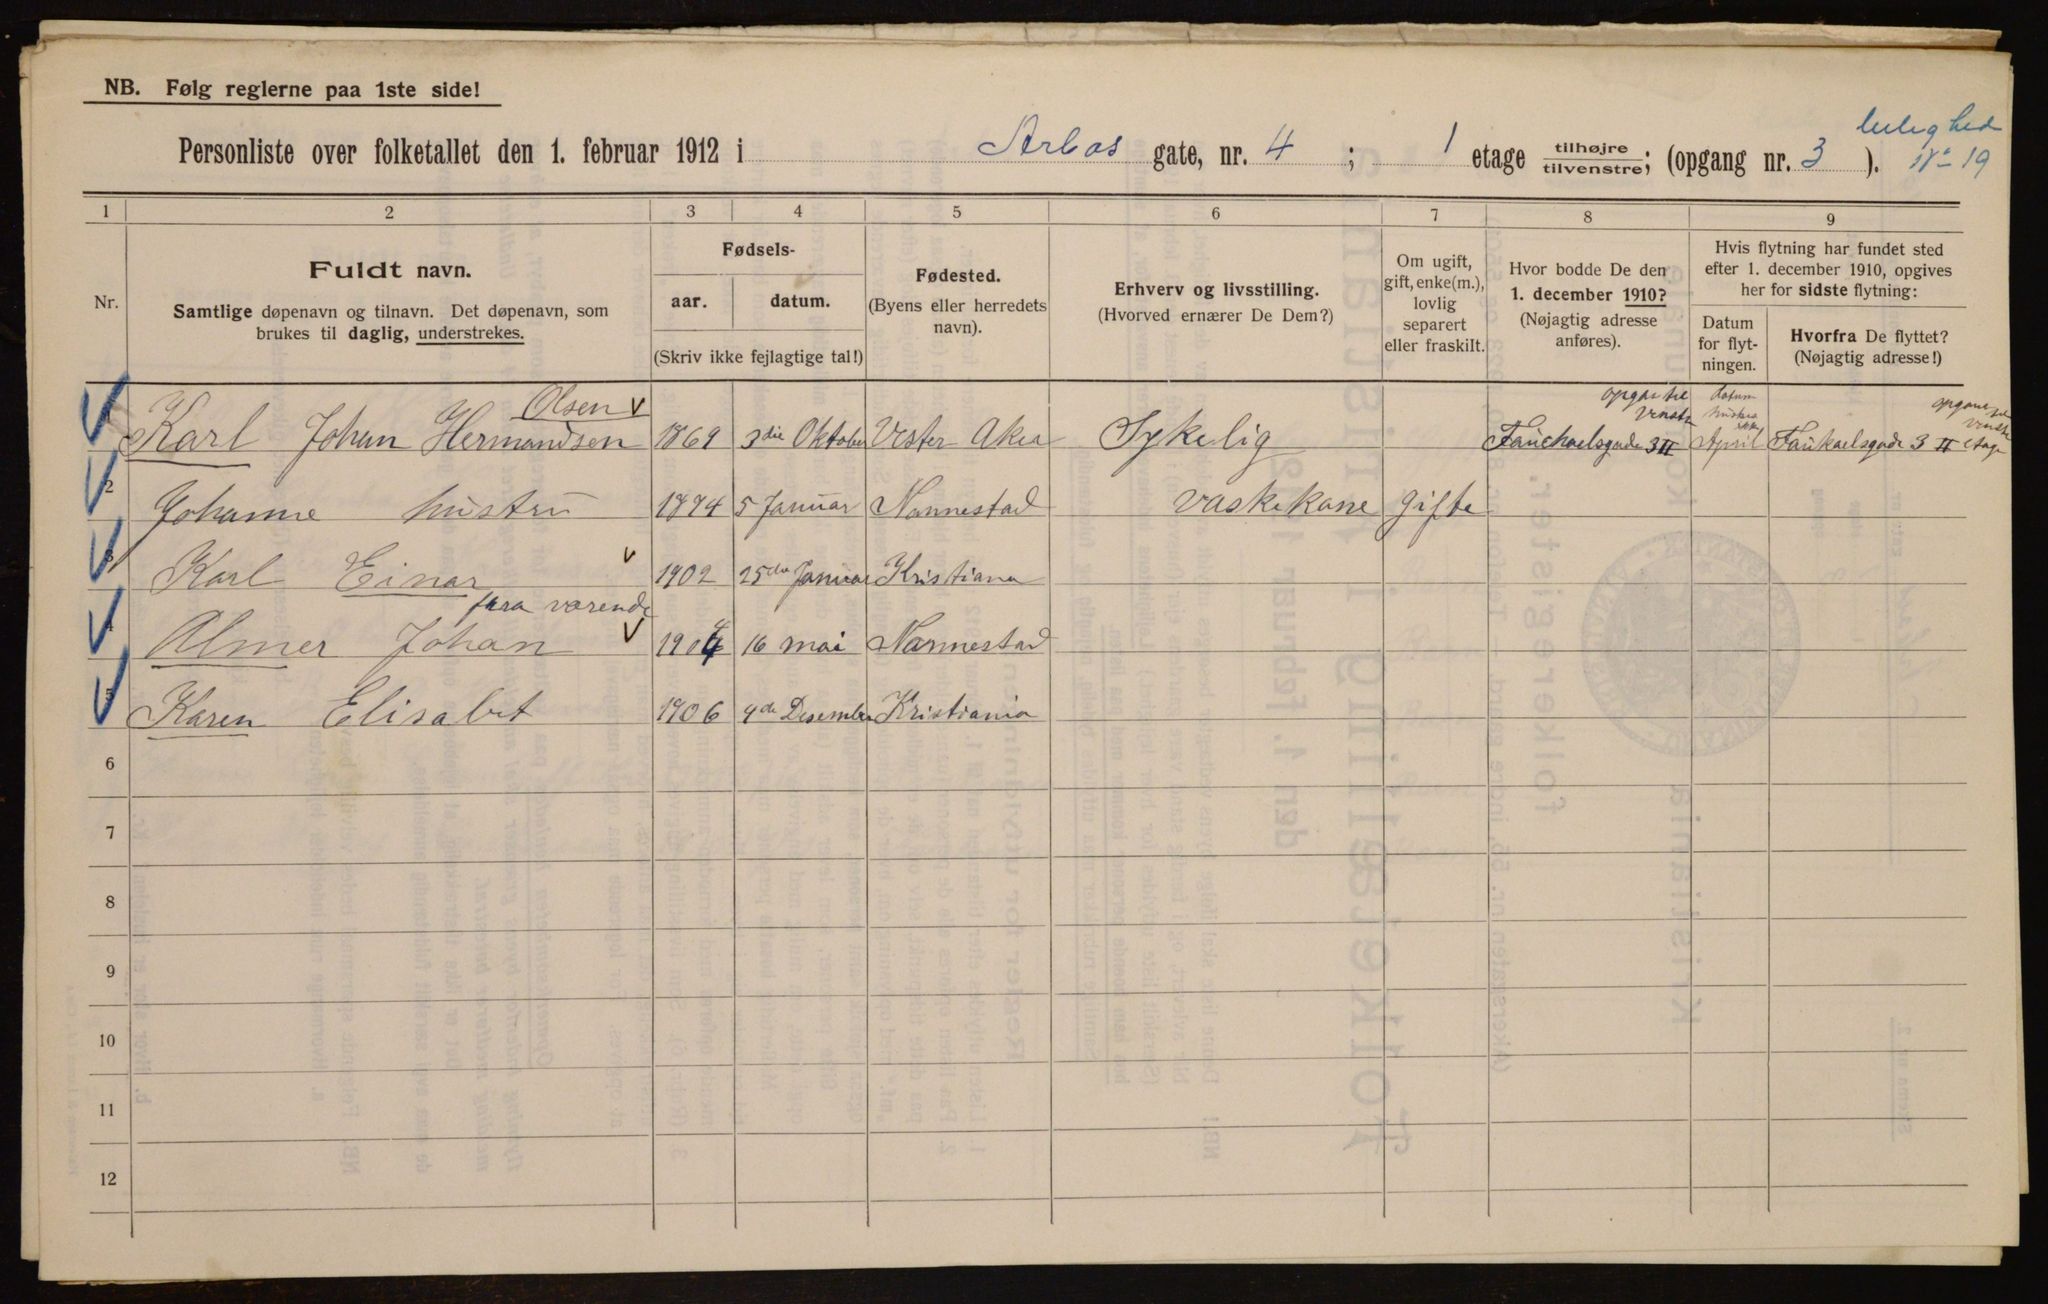 NB. Følg reglerne paa 1ste side!
leilighed
Personliste over folketallet den 1. februar 1912 i Arbos gate, nr. 4 ; 1 etage tilhøjre/tilvenstre; (opgang nr. 3 ). 19
1 2 3 4 5 6 7 8 9
Nr.
Fuldt navn.
Samtlige døpenavn og tilnavn. Det døpenavn, som
brukes til daglig, understrekes.
Fødsels-
aar. datum.
(Skriv ikke fejlagtige tal!)
Fødested.
(Byens eller herredets
navn).
Erhverv og livsstilling.
(Hvorved ernærer De Dem?)
Om ugift,
gift, enke(m.),
lovlig
separert
eller fraskilt.
Hvor bodde De den
1. december 1910?
(Nøjagtig adresse
anføres).
Hvis flytning har fundet sted
efter 1. december 1910, opgives
her for sidste flytning:
Datum
for flyt-
ningen.
Hvorfra De flyttet?
(Nøjagtig adresse!)
Olsen
Karl Johan Hermandsen 1869 3die Oktober Vester Aker Sykelig 3 II April 3 II etage
2 Johanne hustru 1874 5 Januar Nannestad vaskekone gifte
3 Karl Einar 1902 25de Januar Kristiana
fraværende
4 Almer Johan 1904 16 mai Nannestad
5 Karen Elisabet 1906 4de Desember Kristiania
6
7
8
9
10
11
12